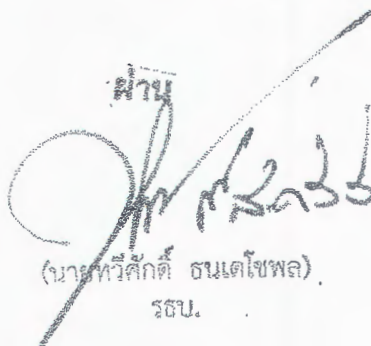 ผ่าน
(นายทวีศักดิ์ ธนเดโชพล)
รธบ.